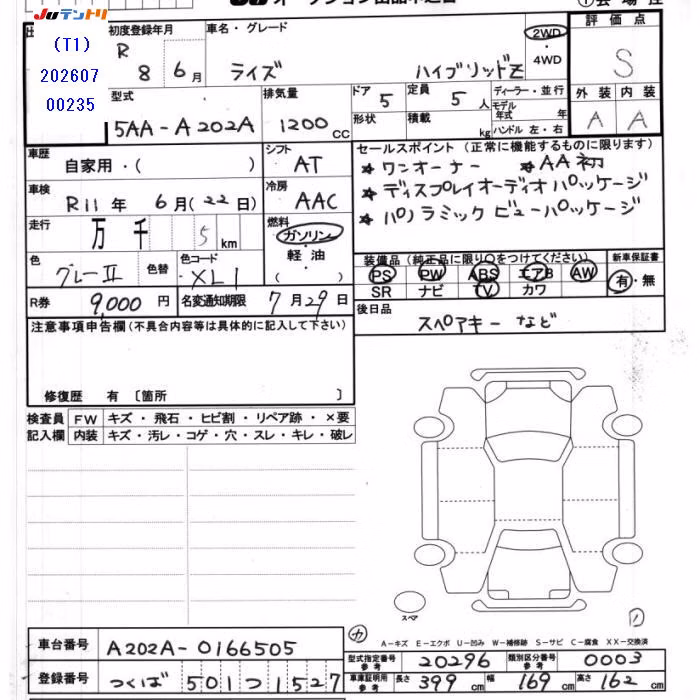 JUテントリ
(T1)
202607
00235
初度登録年月
R 8 6月
車名・グレード
ライズ ハイブリッドZ
2WD
・
4WD
評価点
S
型式
5AA-A202A
排気量
1200 cc
ドア 5
定員 5 人
形状
積載 kg
ディーラー・並行
モデル年式 年
ハンドル 左・右
外装 内装
A A
車歴
自家用・( )
シフト
AT
車検
R11年 6月(22日)
冷房
AAC
走行
万 千 5 km
燃料
ガソリン
・
軽油
( )
色
グレーII
色替
色コード
XL1
R券 9,000円
名変通知期限 7月29日
セールスポイント (正常に機能するものに限ります)
★ ワンオーナー ★ AA初
★ ディスプレイオーディオパッケージ
★ パノラミックビューパッケージ
装備品 (純正品に限り○をつけてください)
新車保証書
PS PW ABS エアB AW
SR ナビ TV カワ
有・無
後日品
スペアキーなど
注意事項申告欄(不具合内容等は具体的に記入して下さい)
修復歴 有 〔箇所 〕
検査員 FW キズ・飛石・ヒビ割・リペア跡・×要
記入欄 内装 キズ・汚レ・コゲ・穴・スレ・キレ・破レ
スペア
カ
A-キズ E-エクボ U-凹み W-補修跡 S-サビ C-腐食 XX-交換済
車台番号 A202A-0166505
登録番号 つくば 501つ1527
型式指定番号 参考 20296
類別区分番号 参考 0003
車庫証明用 参考 長さ 399 cm 幅 169 cm 高さ 162 cm